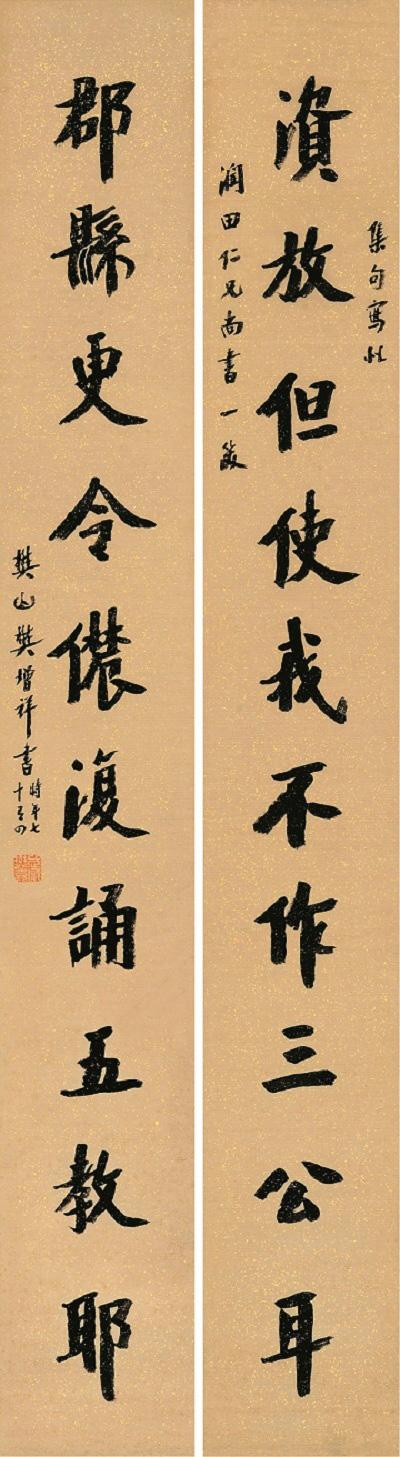 集句寫似
資放但使我不作三公耳
潤田仁兄尚書一粲
郡縣更令儂復誦五教耶
樊山樊增祥書
時年七
十有四